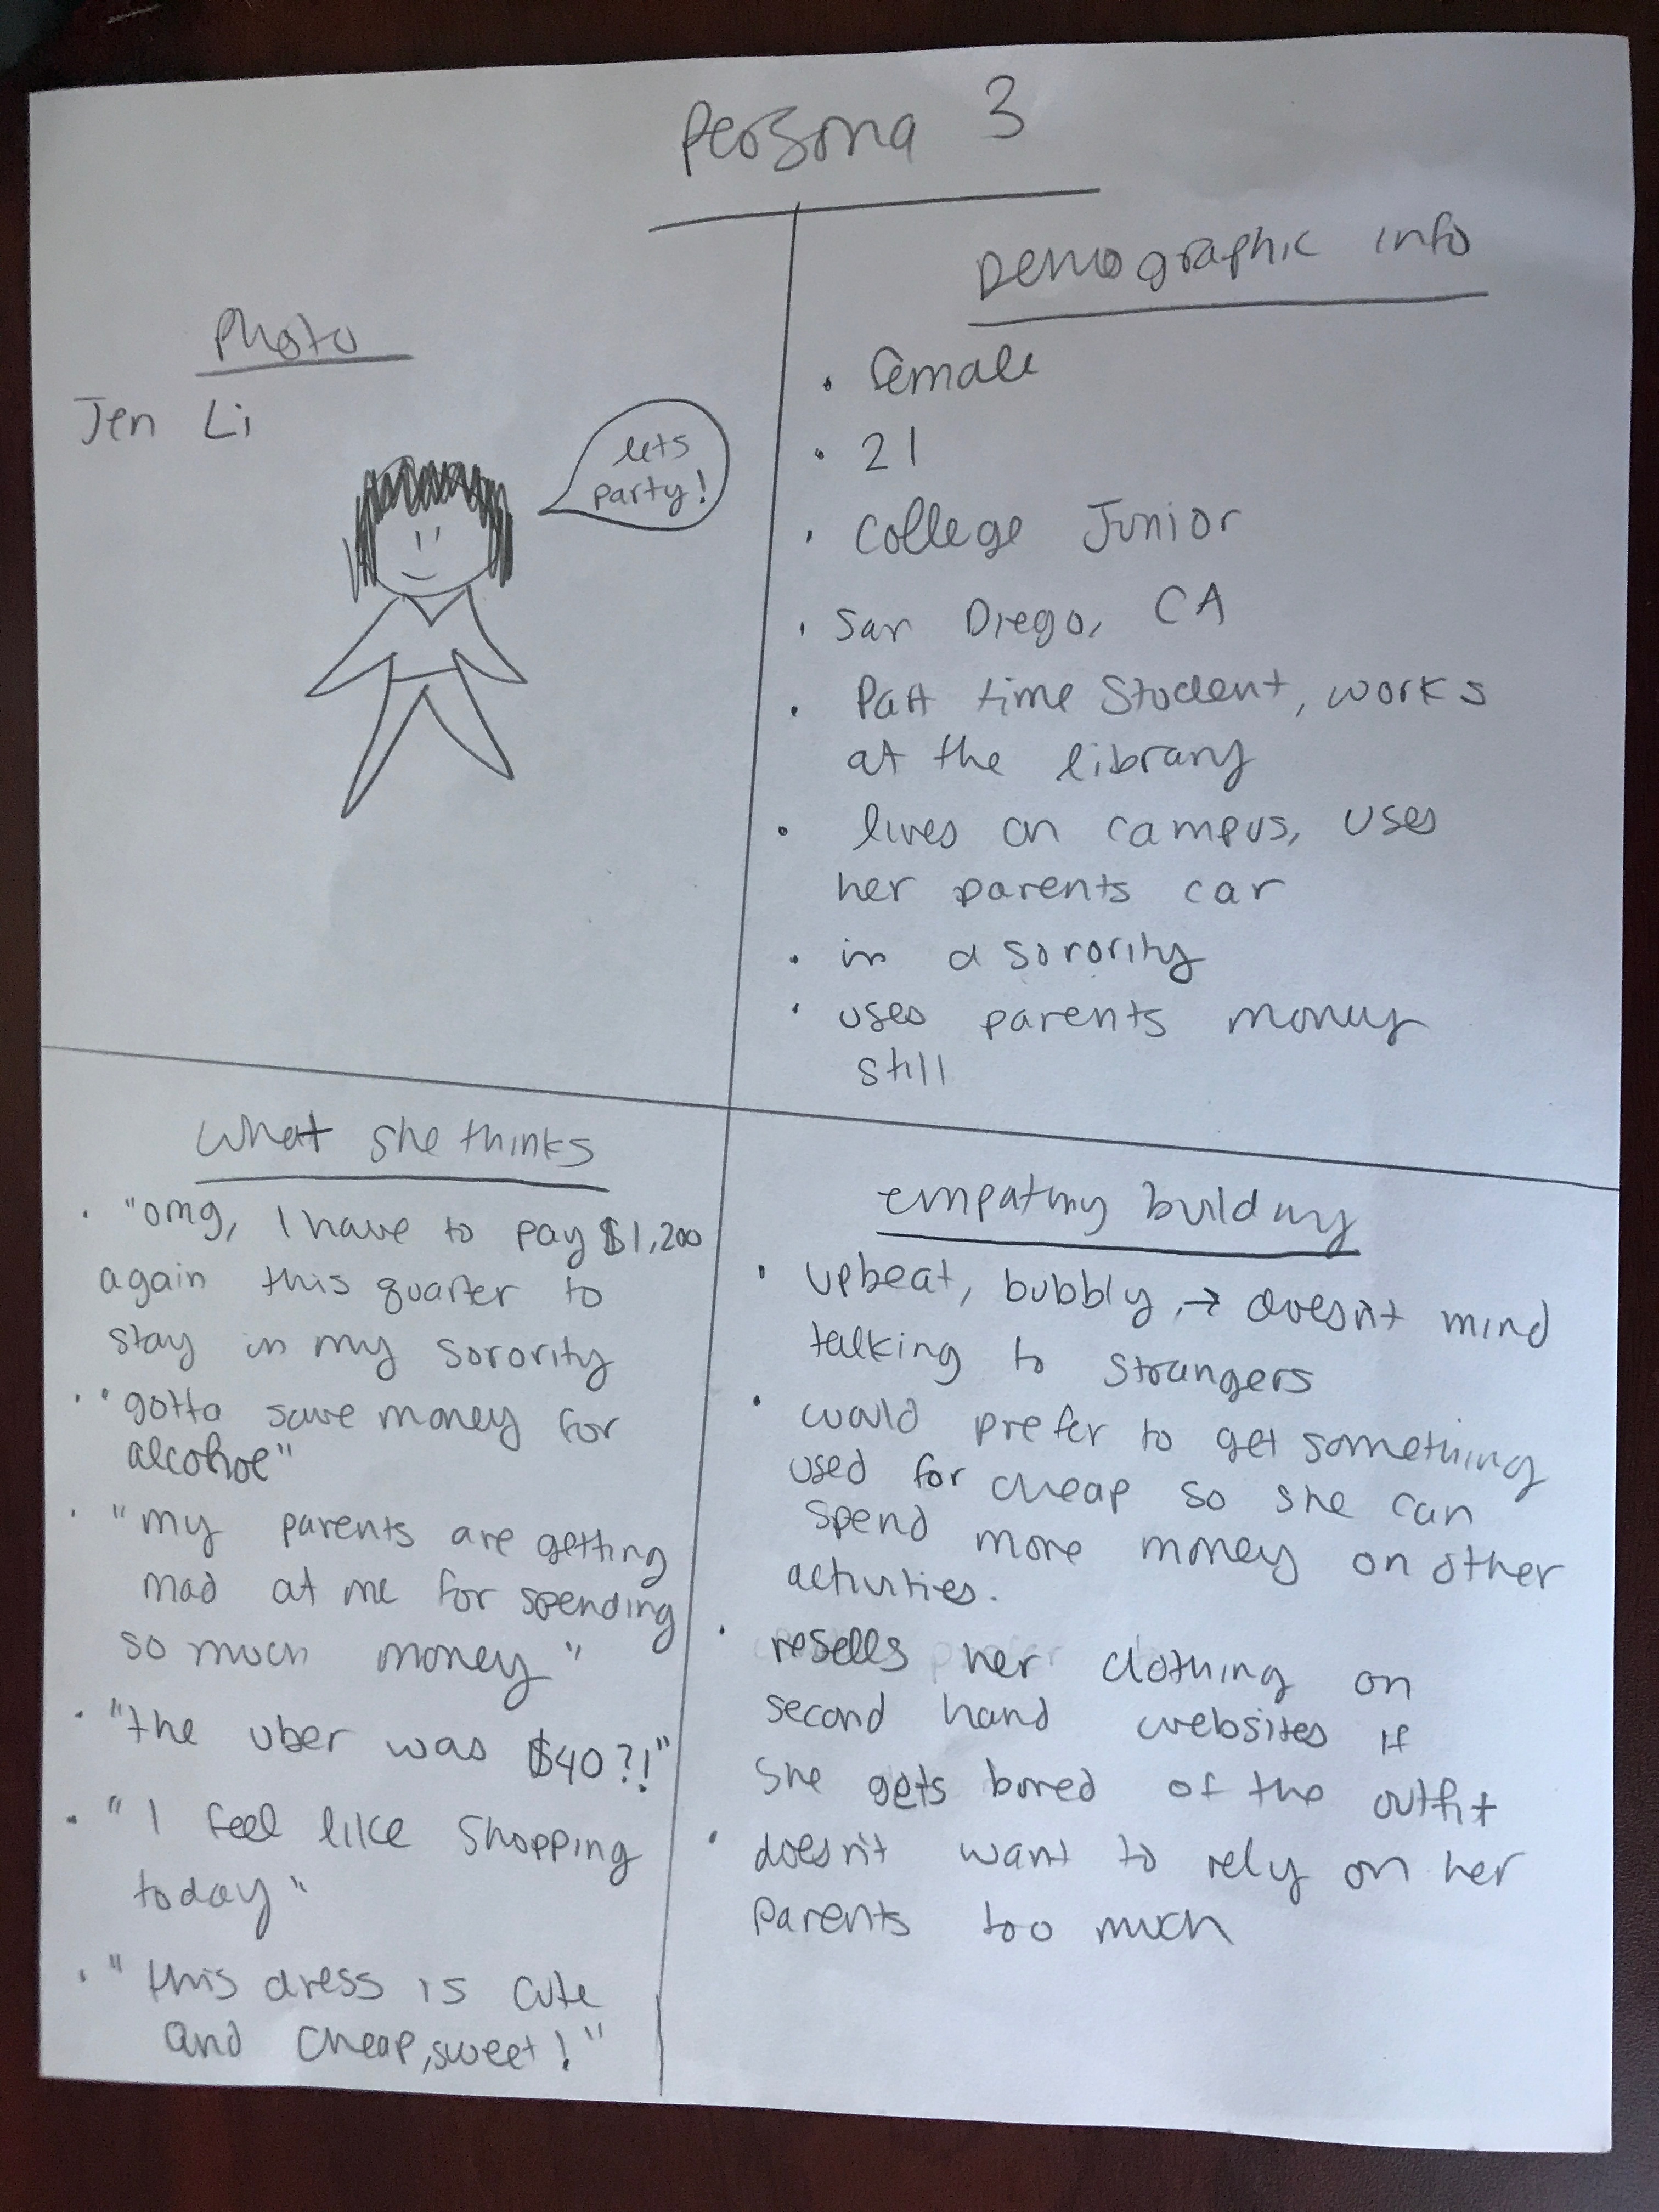 Persona 3
Photo
Jen Li
lets
party!
Demographic info
• female
• 21
• College Junior
• San Diego, CA
• Part time Student, works
at the library
• lives on campus, uses
her parents car
• in a sorority
• uses parents money
still
What she thinks
• "omg, I have to pay $1,200
again this quarter to
stay in my sorority
• "gotta save money for
alcohol"
• "my parents are getting
mad at me for spending
so much money"
• "the uber was $40?!"
• "I feel like shopping
today"
• "this dress is cute
and cheap, sweet!"
empathy building
• upbeat, bubbly, → doesn't mind
talking to strangers
• would prefer to get something
used for cheap so she can
spend more money on other
activities.
• resells her clothing on
second hand websites if
she gets bored of the outfit
• doesn't want to rely on her
parents too much